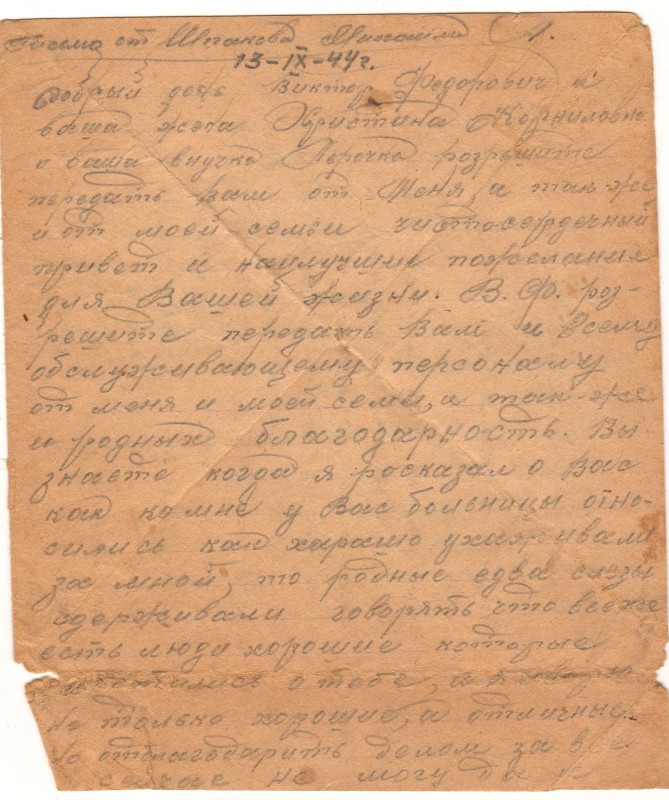 Письмо от Шпакова Михаила 1.
13-IX-44г.
Добрый день Виктор Федорович и
ваша жена Христина Корниловна
и ваша внучка Лерочка разрешите
передать вам от меня, а так-же
и от моей семьи чисто-сердечный
привет и наилучшие пожелания
для Вашей жизни. В.Ф. роз-
решите передать Вам и всему
обслуживающему персоналу
от меня и моей семи, а так-же
и родных благодарность. Вы
знаете когда я росказал о Вас
как ко мне у Вас больницы отно-
сились как харашо ухаживали
за мной, то родные едва слезы
сдерживали говорять, что все же
есть люди хорошие которые
заботились о тобе, а я говорю
не только хорошие, а отличные
но отблагодарить делом за все
сейчас не могу да и